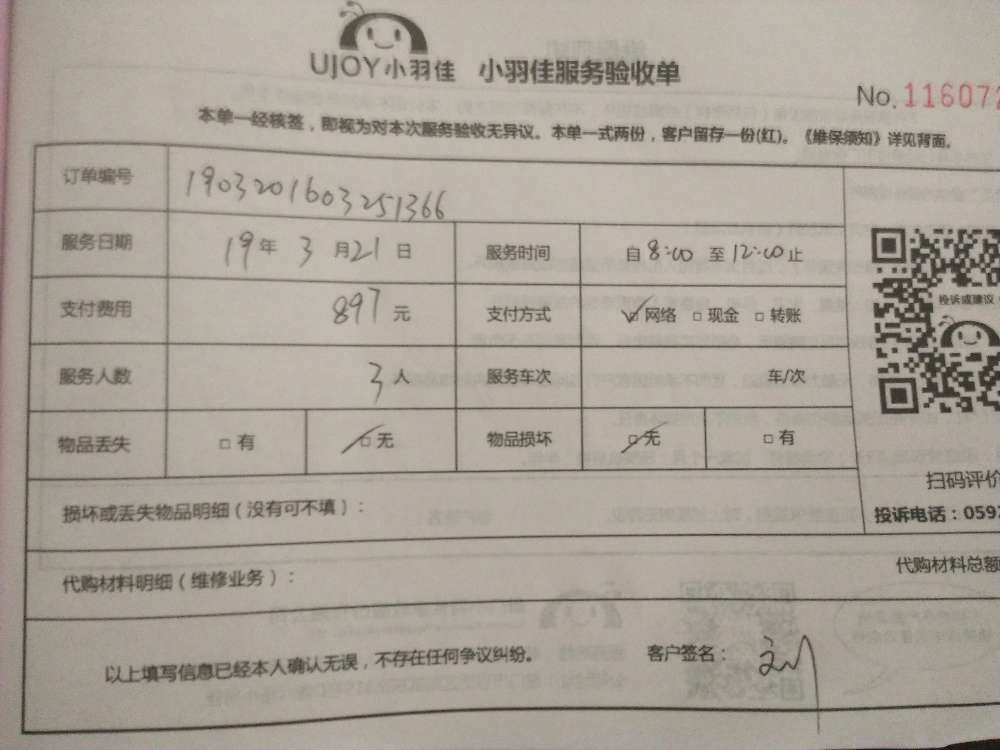 UJOY小羽佳 小羽佳服务验收单
No.116072
本单一经核签，即视为对本次服务验收无异议。本单一式两份，客户留存一份(红)。《维保须知》详见背面。
订单编号 1903201603251366
服务日期 19年 3月21日 服务时间 自8:00 至12:00止
支付费用 897元 支付方式 ☑网络 □现金 □转账
投诉或建议
服务人数 3人 服务车次 车/次
物品丢失 □有 ☑无 物品损坏 ☑无 □有
扫码评价
损坏或丢失物品明细（没有可不填）： 投诉电话：059
代购材料明细（维修业务）： 代购材料总额
以上填写信息已经本人确认无误，不存在任何争议纠纷。 客户签名：